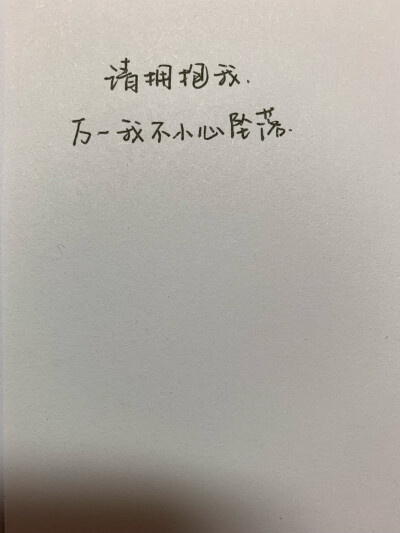 请拥抱我.
万一我不小心坠落.